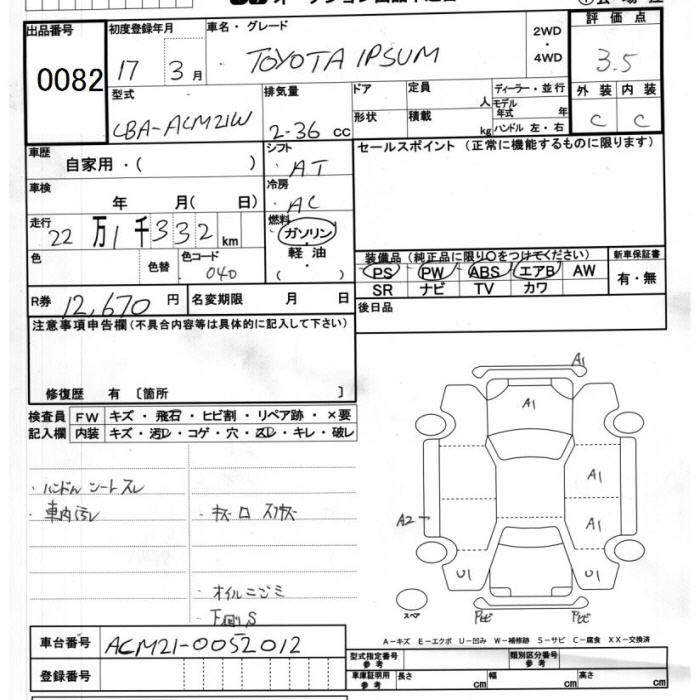 出品番号
0082
初度登録年月
17 3月
車名・グレード
TOYOTA IPSUM
2WD
・
4WD
評価点
3.5
外装 内装
C C
型式
CBA-ACM21W
排気量
2-36 cc
ドア
形状
定員
人
積載
kg
ディーラー・並行
モデル年式 年
ハンドル 左・右
車歴
自家用・( )
シフト
AT
セールスポイント (正常に機能するものに限ります)
車検
年 月( 日)
冷房
AC
走行
22万1千332km
燃料
ガソリン
軽油
( )
色
色替
色コード
040
装備品 (純正品に限り○をつけてください)
PS PW ABS エアB AW
SR ナビ TV カワ
新車保証書
有・無
R券 12,670円
名変期限 月 日
後日品
注意事項申告欄(不具合内容等は具体的に記入して下さい)
修復歴 有 〔箇所 〕
検査員
記入欄
FW キズ・飛石・ヒビ割・リペア跡・×要
内装 キズ・汚レ・コゲ・穴・スレ・キレ・破レ
ハンドル シートスレ
車内汚レ
オイルニジミ
下廻りS
A1
A1
A1
A1
A2
U1
U1
スペア
Pセビ
Pセビ
A-キズ E-エクボ U-凹み W-補修跡 S-サビ C-腐食 XX-交換済
車台番号
ACM21-0052012
登録番号
型式指定番号
参考
類別区分番号
参考
車庫証明用
参考
長さ cm
幅 cm
高さ cm